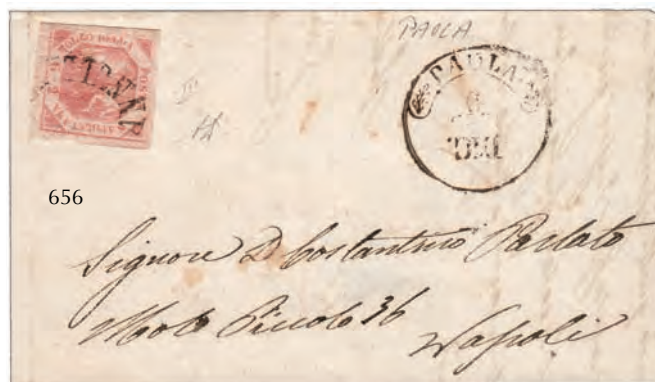 PAOLA
PAOLA
6
DIC
656
Signore D Costantino Parlato
Molo Piccolo 36
Napoli